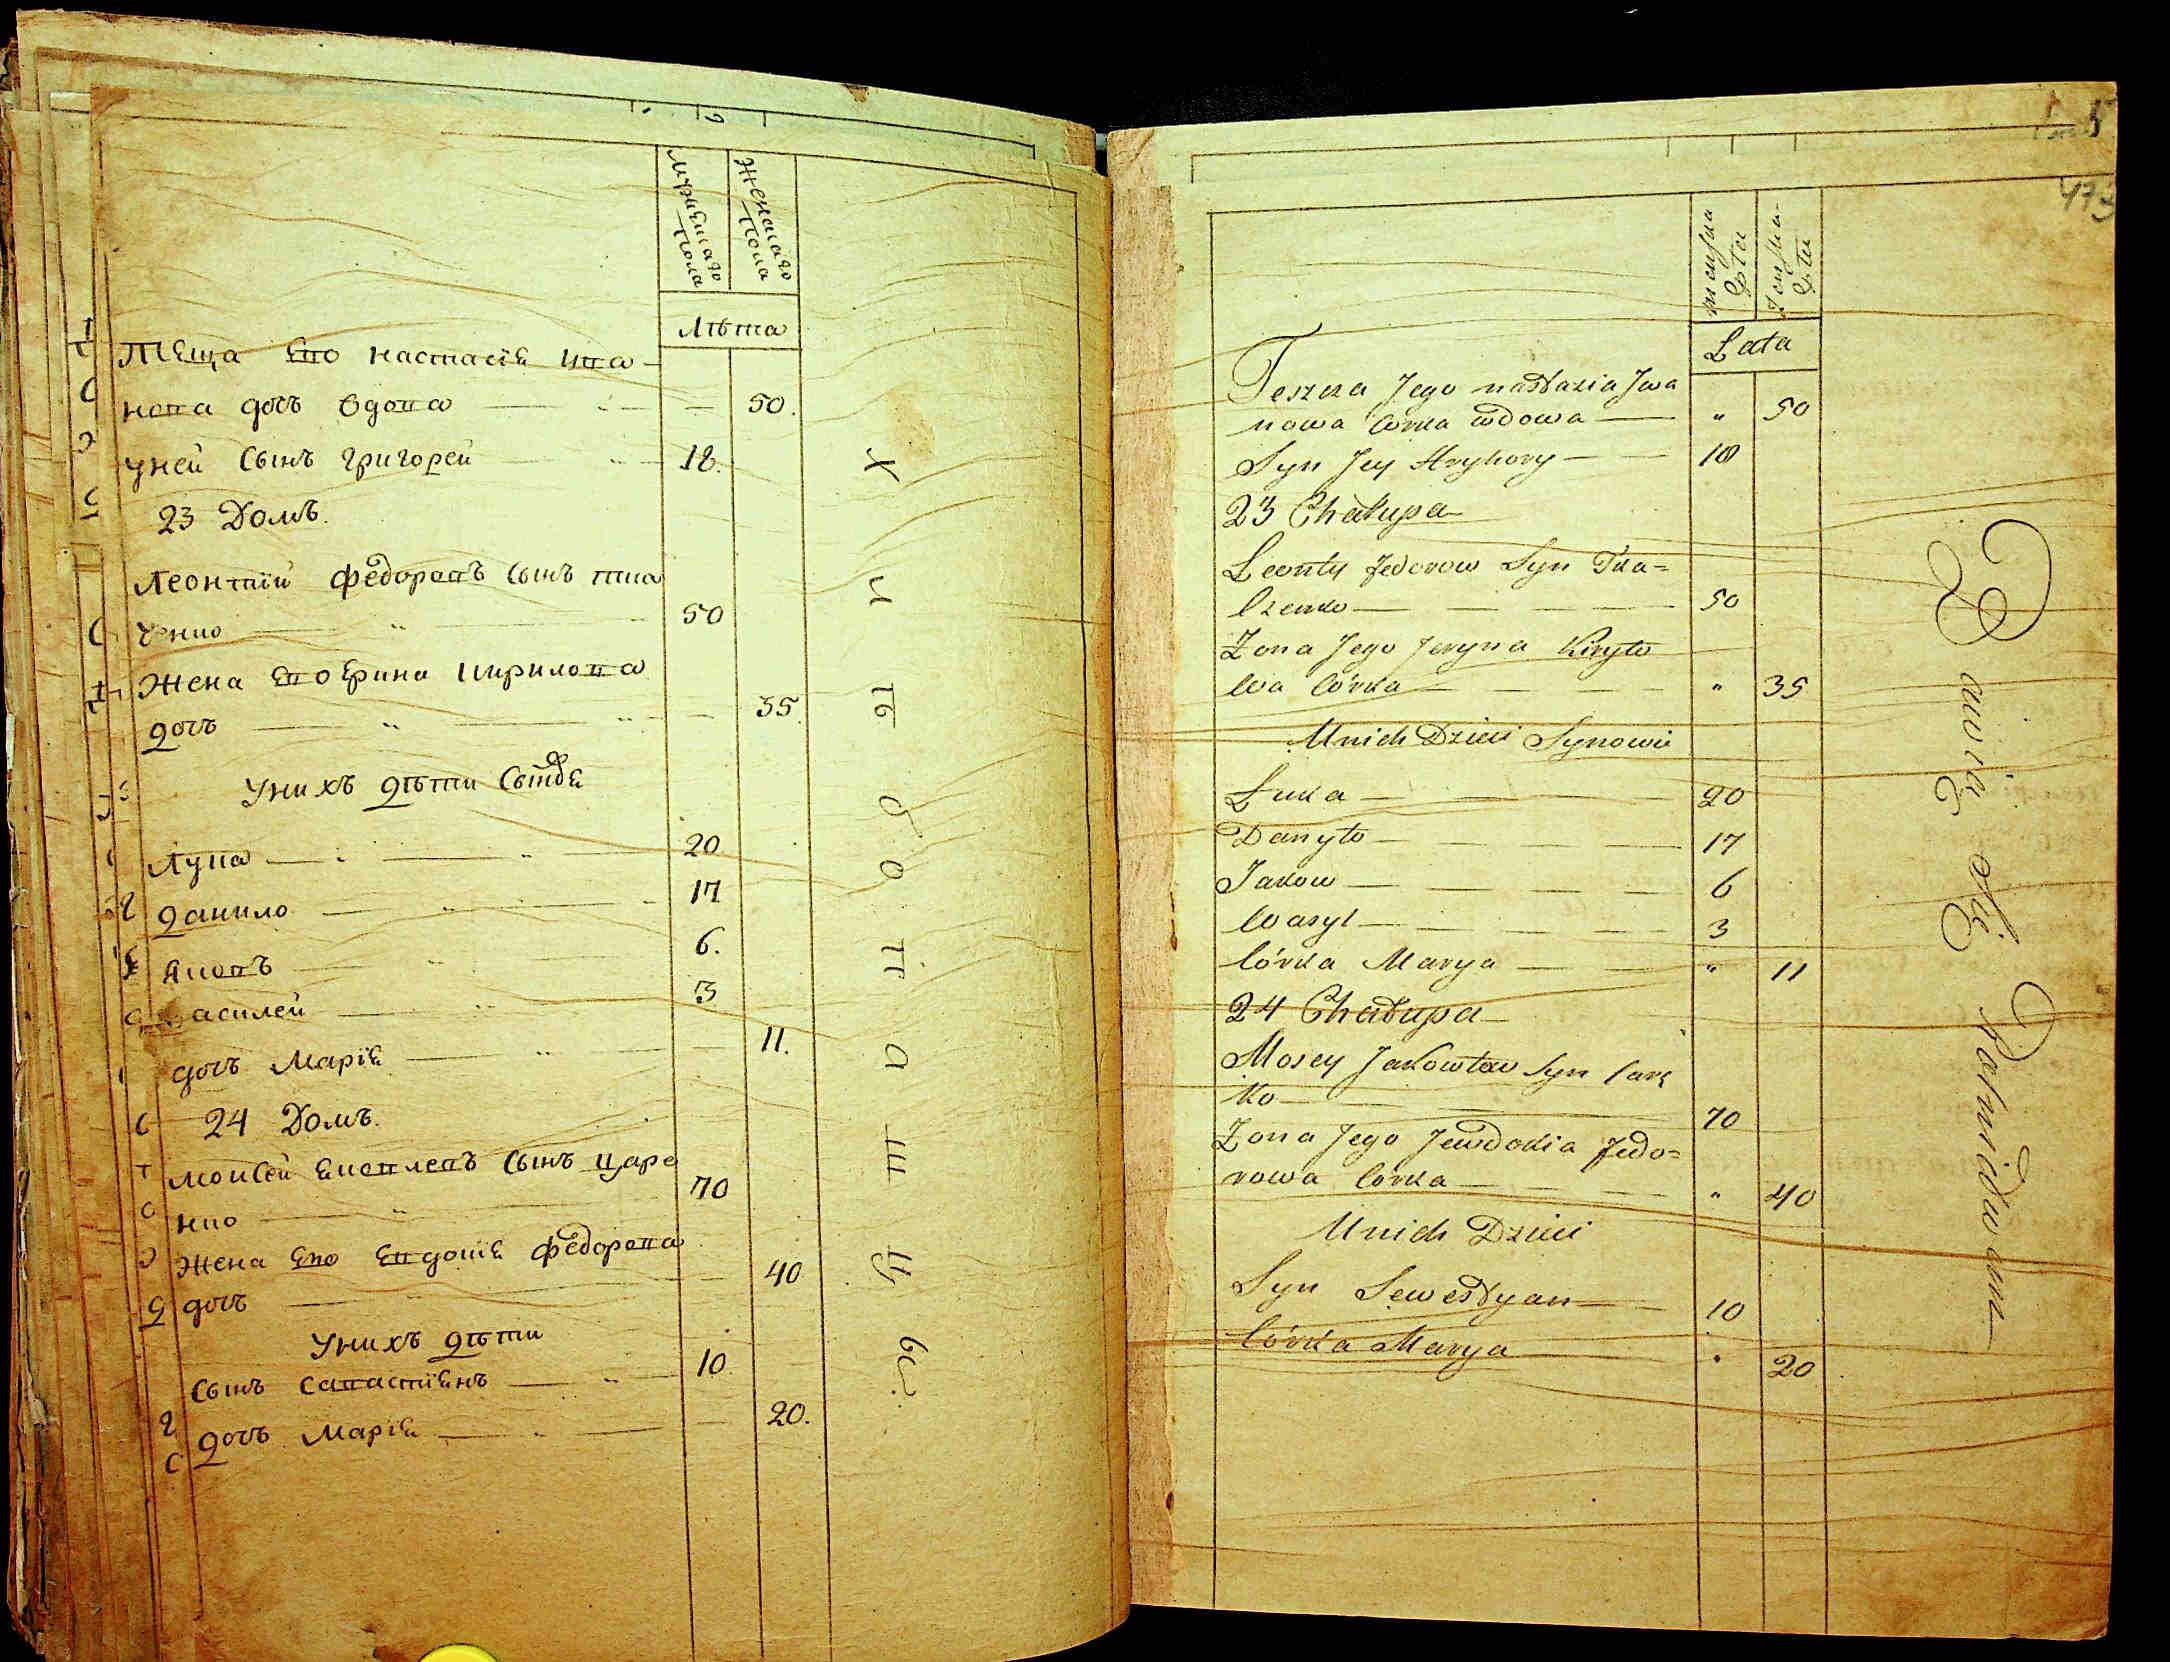 Мужескаго Пола
Женскаго Пола
Лѣта
Теща Его Настасія Ива-
нова дочь Вдова — 50.
Уней Сынъ Григорей 18.
23 Домъ.
Леонтій Федоровъ Сынъ Тка
ченко 50
Жена Его Ерина Кирилова
дочь — 35
Унихъ дѣти Сыновя
Лука 20
Данило 17
Яковъ 6.
Василей 3
дочь Марія — 11.
24 Домъ.
Моисей Яковлевъ Сынъ Царе
нко 70
Жена Его Евдокія Федорова
дочь — 40
Унихъ дѣти
Сынъ Савастіянъ 10
Дочь Марія — 20.
473
męzska Płci
Żeńska Płci
Lata
Teszcza Jego nastazia Jwa
nowa Córka wdowa „ 50
Syn Jey Hryhory 18
23 Chałupa
Leonty fedorow Syn Tka=
Czenko 50
Żona Jego Jeryna Kiryło
wa Córka „ 35
Unich Dzieci Synowie
Łuka 20
Danyło 17
Jakow 6
Wasyl 3
Córka Marya „ 11
24 Chałupa
Mosey Jakowlew Syn Care
ko 70
Żona Jego Jewdokia fedo=
rowa Córka „ 40
Unich Dzieci
Syn Sewestyan 10
Córka Marya „ 20